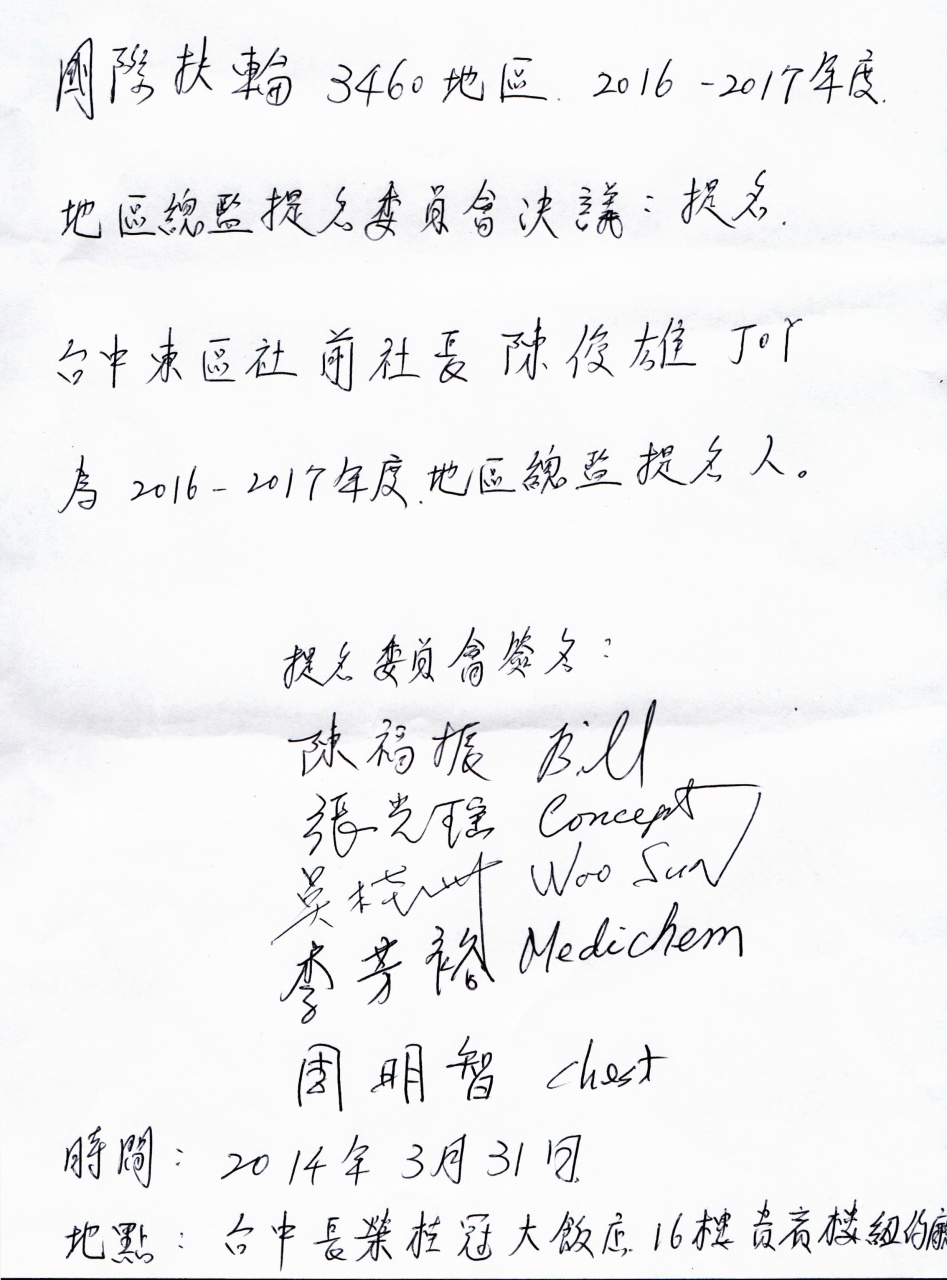 國際扶輪 3460地區 2016-2017年度
地區總監提名委員會決議：提名
台中東區社 前社長 陳俊雄 Joy
為 2016-2017年度 地區總監提名人。
提名委員會簽名：
陳福振 Bill
張光瑤 Concept
吳 Woo Sun
李芳裕 Medichem
周明智 Chest
時間：2014年3月31日
地點：台中長榮桂冠大飯店 16樓貴賓楼紐約廳